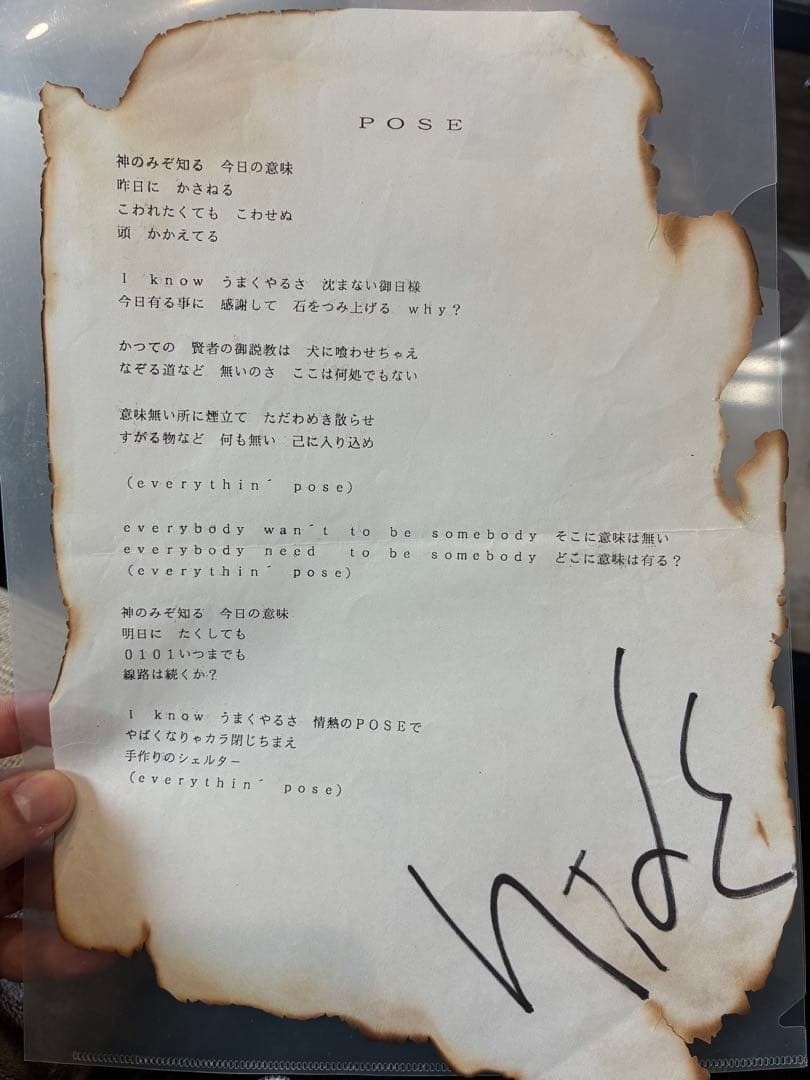 ＰＯＳＥ
神のみぞ知る　今日の意味
昨日に　かさねる
こわれたくても　こわせぬ
頭　かかえてる
Ｉ　ｋｎｏｗ　うまくやるさ　沈まない御日様
今日有る事に　感謝して　石をつみ上げる　ｗｈｙ？
かつての　賢者の御説教は　犬に喰わせちゃえ
なぞる道など　無いのさ　ここは何処でもない
意味無い所に煙立て　ただわめき散らせ
すがる物など　何も無い　己に入り込め
（ｅｖｅｒｙｔｈｉｎ´　ｐｏｓｅ）
ｅｖｅｒｙｂｏｄｙ　ｗａｎ´ｔ　ｔｏ　ｂｅ　ｓｏｍｅｂｏｄｙ　そこに意味は無い
ｅｖｅｒｙｂｏｄｙ　ｎｅｅｄ　　ｔｏ　ｂｅ　ｓｏｍｅｂｏｄｙ　どこに意味は有る？
（ｅｖｅｒｙｔｈｉｎ´　ｐｏｓｅ）
神のみぞ知る　今日の意味
明日に　たくしても
０１０１いつまでも
線路は続くか？
Ｉ　ｋｎｏｗ　うまくやるさ　情熱のＰＯＳＥで
やばくなりゃカラ閉じちまえ
手作りのシェルター
（ｅｖｅｒｙｔｈｉｎ´　ｐｏｓｅ）
hide